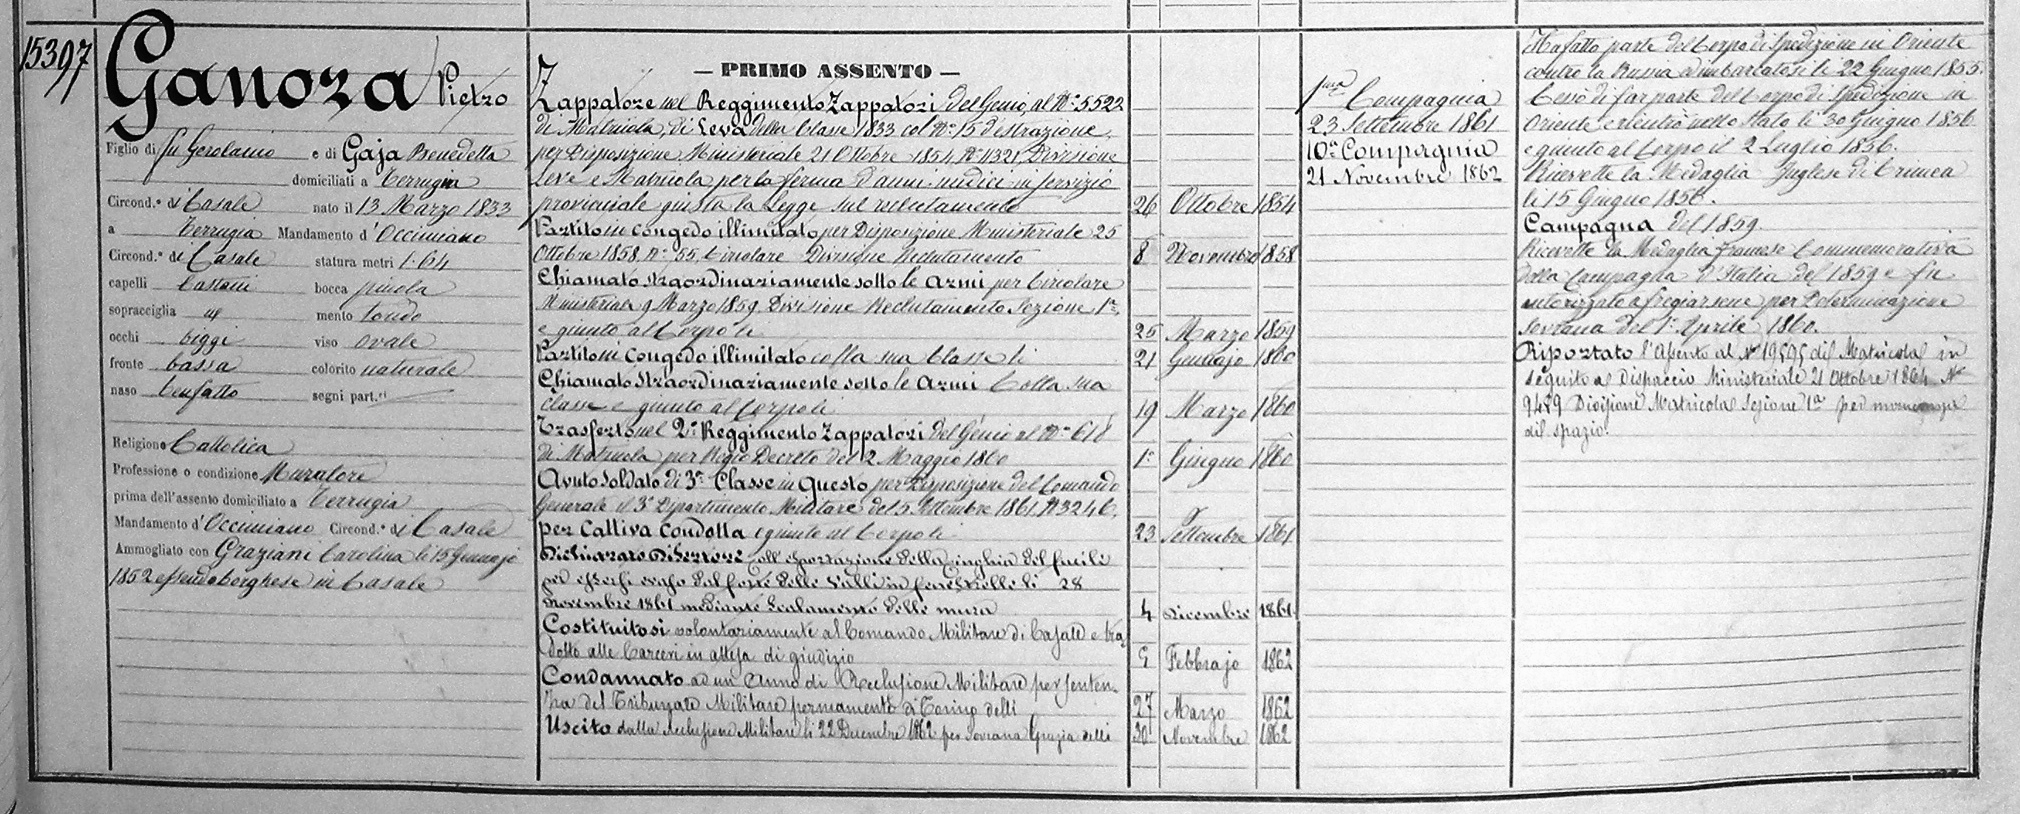 15397
Ganora Pietro
Figlio di fu Gerolamo e di Gaja Benedetta
domiciliati a Terrugia
Circond.º di Casale nato il 13 Marzo 1833
a Terrugia Mandamento d'Occimiano
Circond.º di Casale statura metri 1.64
capelli Castani bocca piccola
sopracciglia id mento tondo
occhi biggi viso ovale
fronte bassa colorito naturale
naso benfatto segni part.ri
Religione Cattolica
Professione o condizione Muratore
prima dell'assento domiciliato a Terrugia
Mandamento d'Occimiano Circond.º di Casale
Ammogliato con Graziani Carolina li 15 Gennajo
1852 essendo borghese in Casale
— PRIMO ASSENTO —
Zappatore nel Reggimento Zappatori del Genio, al Nº 5522
di Matricola, di Leva della Classe 1833 col Nº 15 d'estrazione,
per Disposizione Ministeriale 21 Ottobre 1854, Nº 11321, Divisione
Leve e Matricola per la ferma d'anni undici in servizio
provinciale giusta la Legge sul reclutamento 26 Ottobre 1854
Partito in congedo illimitato per Disposizione Ministeriale 25
Ottobre 1858, Nº 55, Circolare Divisione Reclutamento 8 Novembre 1858
Chiamato straordinariamente sotto le armi per Circolare
Ministeriale 9 Marzo 1859, Divisione Reclutamento Sezione 1ª
e giunto al Corpo li 25 Marzo 1859
Partito in congedo illimitato colla sua Classe li 21 Gennajo 1860
Chiamato straordinariamente sotto le armi Colla sua
classe e giunto al Corpo li 19 Marzo 1860
Trasferto nel 2º Reggimento Zappatori del Genio al Nº 618
di Matricola per Regio Decreto del 2 Maggio 1860 1º Giugno 1860
Avuto soldato di 3ª Classe in Questo per Disposizione del Comando
Generale il 3º Dipartimento Militare del 5 Settembre 1861, Nº 3246,
per Cattiva Condotta e giunto al Corpo li 23 Settembre 1861
Dichiarato Disertore coll'esportazione della cinghia del fucile
per essersi evaso dal forte delle Valli in fenestrelle li 28
novembre 1861 mediante Scalamento delle mura 4 Dicembre 1861
Costituitosi volontariamente al Comando Militare di Casale e tra
dotto alle Carceri in attesa di giudizio 5 Febbrajo 1862
Condannato ad un Anno di Reclusione Militare per senten
za del Tribunale Militare permanente di Torino delli 27 Marzo 1862
Uscito dalla Reclusione Militare li 22 Dicembre 1862 per Sovrana Grazia delli 30 Novembre 1862
1ma Compagnia
23 Settembre 1861
10ª Compagnia
21 Novembre 1862
Ha fatto parte del Corpo di Spedizione in Oriente
contro la Russia ed imbarcatosi li 22 Giugno 1855.
Cessò di far parte del Corpo di Spedizione in
Oriente e rientrò nello Stato li 30 Giugno 1856
e giunto al Corpo il 2 Luglio 1856.
Ricevette la Medaglia Inglese di Crimea
li 15 Giugno 1856.
Campagna del 1859.
Ricevette la Medaglia francese Commemorativa
della Campagna d'Italia del 1859 e fu
autorizzato a fregiarsene per Determinazione
Sovrana del 1º Aprile 1860.
Riportato l'Assento al Nº 19595 di Matricola in
seguito a Dispaccio Ministeriale 21 Ottobre 1864 Nº
9489 Divisione Matricola Sezione 1ª per mancanza
di spazio.